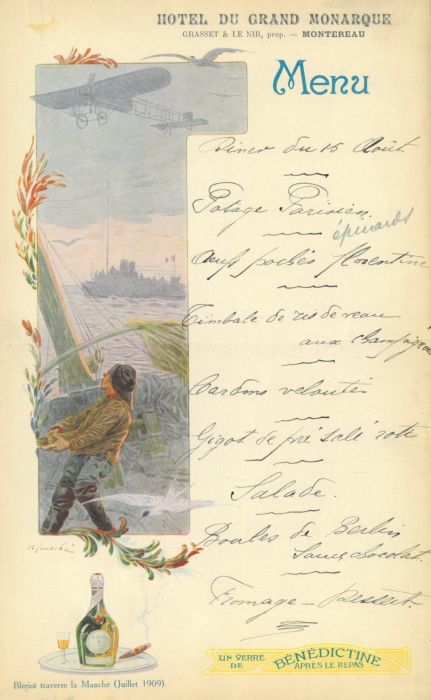 HOTEL DU GRAND MONARQUE
GRASSET & LE NIR, prop. — MONTEREAU
Menu
Diner du 15 Août
Potage Parisien
épinards
Œufs pochés florentine
Timbale de ris de veau
aux champignons
Cardons velouté
Gigot de pré salé roti
Salade.
Boules de Berlin
Sauce chocolat.
Fromage — Dessert.
UN VERRE DE BÉNÉDICTINE APRÈS LE REPAS
Blériot traverse la Manche (Juillet 1909).